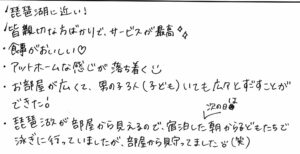 ・琵琶湖に近い！
・皆親切な方ばかりで、サービスが最高✨
・食事がおいしい♡
・アットホームな感じが落ち着く☺
・お部屋が広くて、男の子3人(子ども)いても広々とすごすことが
できた！
・琵琶湖が部屋から見えるので、宿泊した次の日の朝から子どもたちで
泳ぎに行っていましたが、部屋から見守ってました☺(笑)